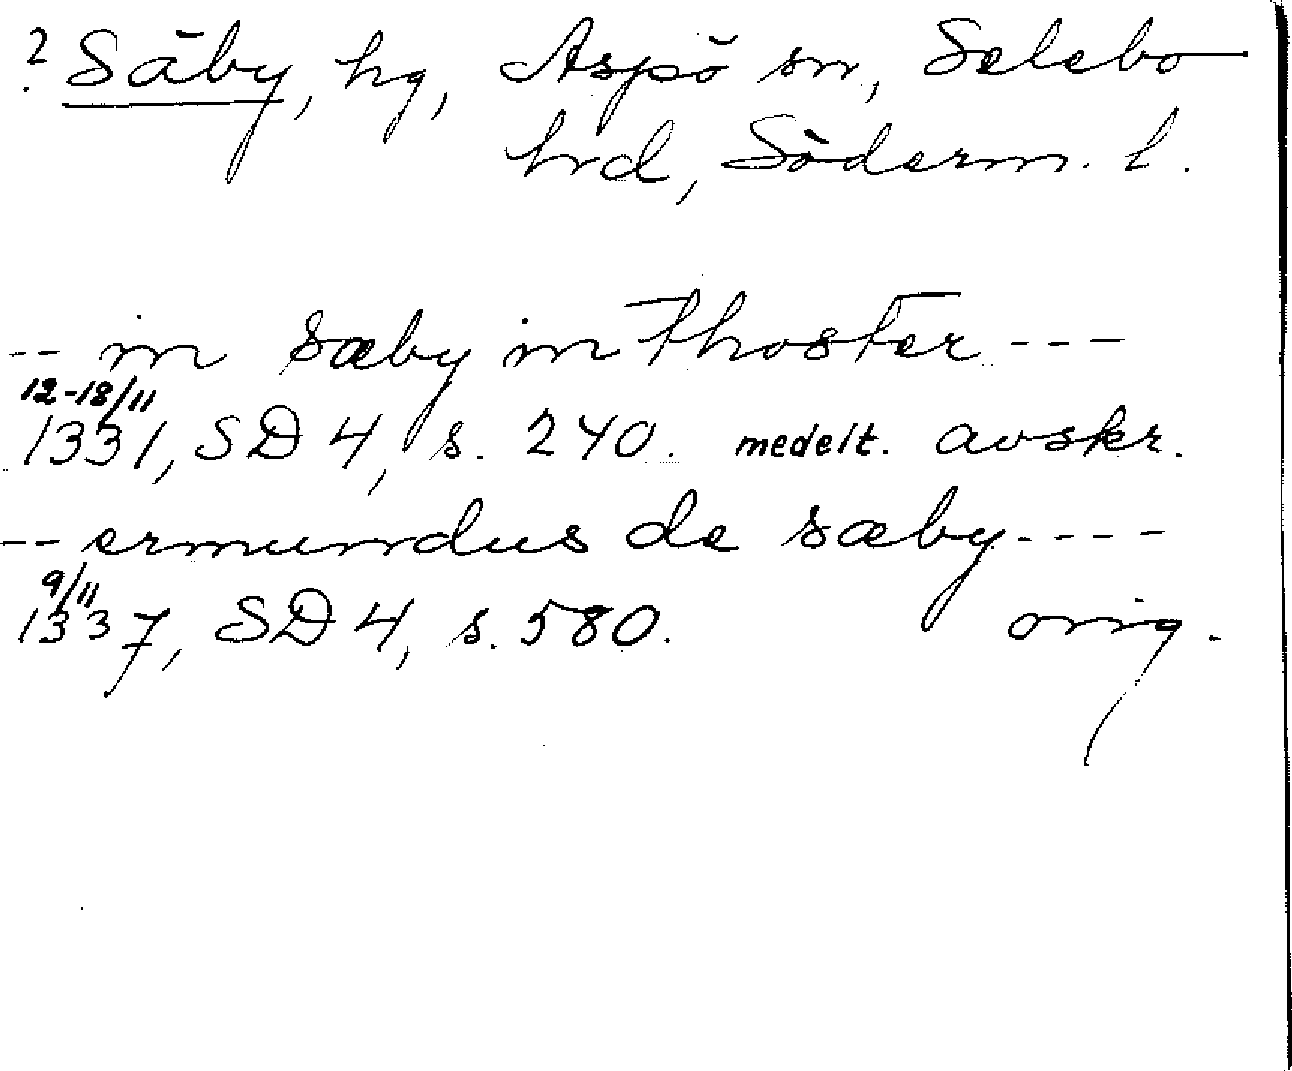 ? Säby, hg, Aspö sn, Selebo
hrd, Söderm. l.
-- in sæby in Thoster ---
12-18/11
1331, SD 4, s. 240. medelt. avskr.
-- ermundus de sæby ----
9/11
1337, SD 4, s. 580. orig.